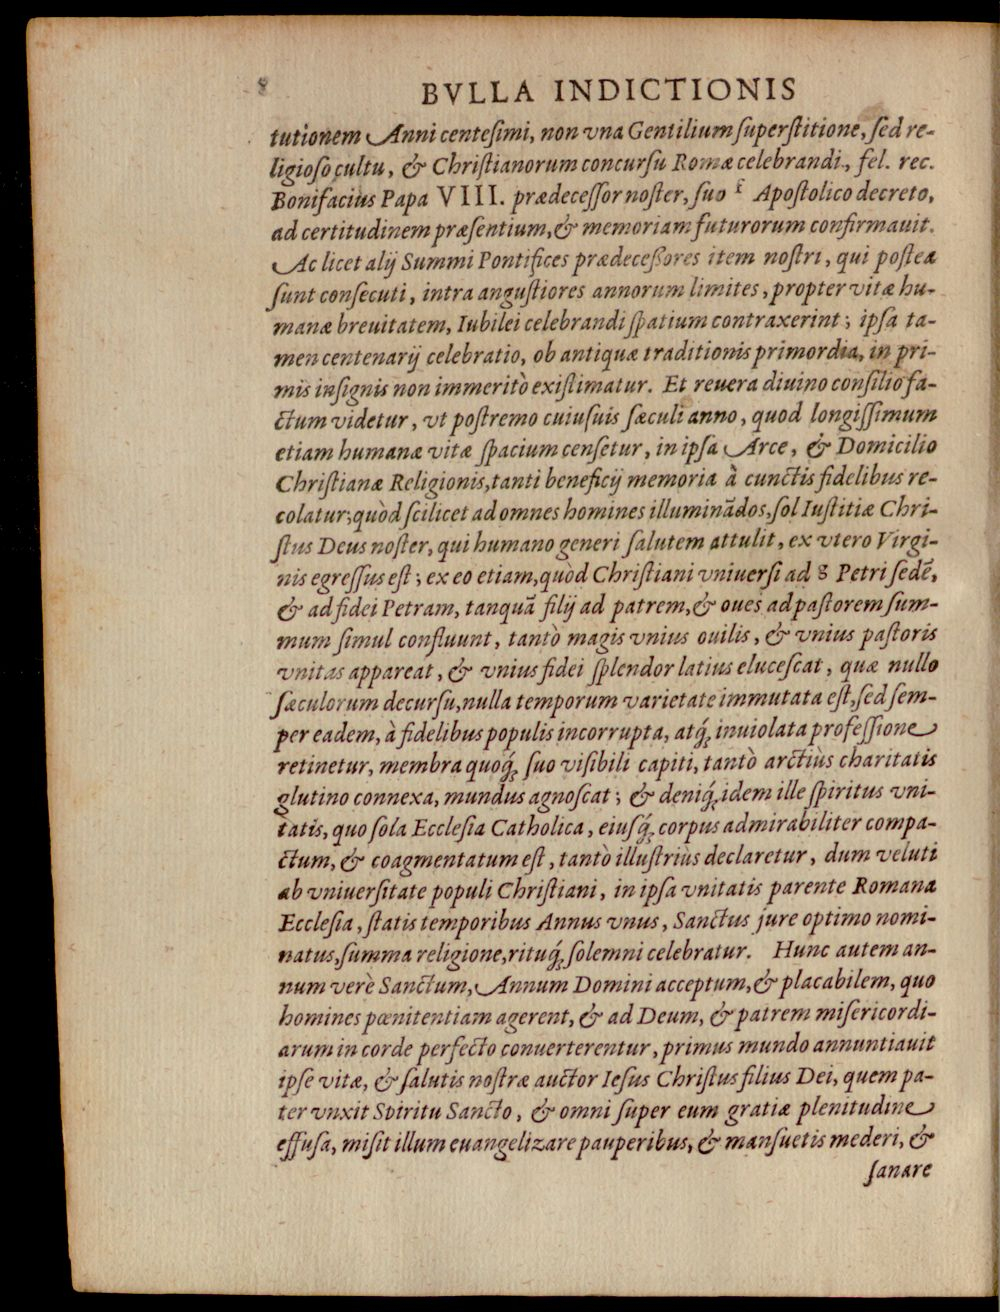 8
BVLLA INDICTIONIS
tutionem Anni centesimi, non vna Gentilium superstitione, sed re-
ligioso cultu, & Christianorum concursu Romæ celebrandi, fel. rec.
Bonifacius Papa VIII. prædecessor noster, suo Apostolico decreto,
ad certitudinem præsentium, & memoriam futurorum confirmauit.
Ac licet alij Summi Pontifices prædecessores item nostri, qui posteà
sunt consecuti, intra angustiores annorum limites, propter vitæ hu-
manæ breuitatem, Iubilei celebrandi spatium contraxerint; ipsa ta-
men centenarij celebratio, ob antiquæ traditionis primordia, in pri-
mis insignis non immeritò existimatur. Et reuera diuino consilio fa-
ctum videtur, vt postremo cuiusuis sæculi anno, quod longissimum
etiam humanæ vitæ spacium censetur, in ipsa Arce, & Domicilio
Christianæ Religionis, tanti beneficij memoria à cunctis fidelibus re-
colatur; quòd scilicet ad omnes homines illuminãdos, sol Iustitiæ Chri-
stus Deus noster, qui humano generi salutem attulit, ex vtero Virgi-
nis egressus est; ex eo etiam, quòd Christiani vniuersi ad 8 Petri sedẽ,
& ad fidei Petram, tanquã filij ad patrem, & oues ad pastorem sum-
mum simul confluunt, tantò magis vnius ouilis, & vnius pastoris
vnitas appareat, & vnius fidei splendor latius elucescat, quæ nullo
sæculorum decursu, nulla temporum varietate immutata est, sed sem-
per eadem, à fidelibus populis incorrupta, atq́; inuiolata professione
retinetur, membra quoq́; suo visibili capiti, tantò arctiùs charitatis
glutino connexa, mundus agnoscat; & deniq́; idem ille spiritus vni-
tatis, quo sola Ecclesia Catholica, eiusq́; corpus admirabiliter compa-
ctum, & coagmentatum est, tantò illustrius declaretur, dum veluti
ab vniuersitate populi Christiani, in ipsa vnitatis parente Romana
Ecclesia, statis temporibus Annus vnus, Sanctus jure optimo nomi-
natus, summa religione, rituq́; solemni celebratur. Hunc autem an-
num verè Sanctum, Annum Domini acceptum, & placabilem, quo
homines pœnitentiam agerent, & ad Deum, & patrem misericordi-
arum in corde perfecto conuerterentur, primus mundo annuntiauit
ipse vitæ, & salutis nostræ auctor Iesus Christus filius Dei, quem pa-
ter vnxit Spiritu Sancto, & omni super eum gratiæ plenitudine
effusa, misit illum euangelizare pauperibus, & mansuetis mederi, &
sanare